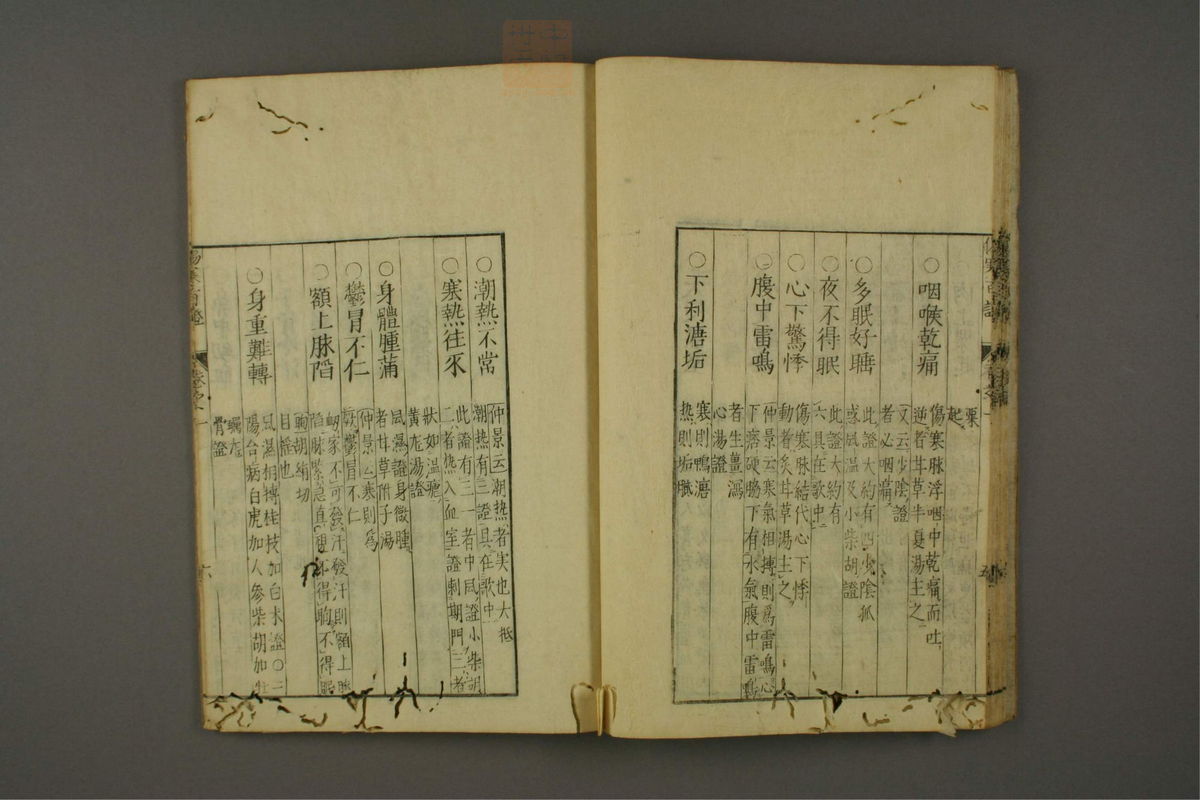 栗
起
○咽喉乾痛
傷寒脉浮咽中乾痛而吐
逆者甘草半夏湯主之
又云少陰證
者必咽痛
○多眠好睡
此證大約有四少陰狐
惑風温及小柴胡證
○夜不得眠
此證大約有
六具在歌中
○心下驚悸
傷寒脉結代心下悸
動者炙甘草湯主之
○腹中雷鳴
仲景云寒氣相搏則爲雷鳴心
下痞硬脇下有水氣腹中雷鳴
者生薑瀉
心湯證
○下利溏垢
寒則鴨溏
热則垢膩
○潮熱不常
仲景云潮热者実也大抵
潮热有三證具在歌中
○寒熱往来
此證有三一者中風證小柴胡
二者热入血室證刺期門三者
狀如温瘧
○身體腫滿
風濕證身微腫
者甘草附子湯
○鬱冒不仁
仲景云寒則爲
鬱冒不仁
○額上脉陷
衂家不可發汗發汗則額上脉
陷脉緊急直視不得眴不得眠
眴胡絹切
目揺也
○身重難轉
風濕相搏桂枝加白术證○三
陽合病白虎加人參柴胡加牡
蠣龙
骨證
傷寒百證